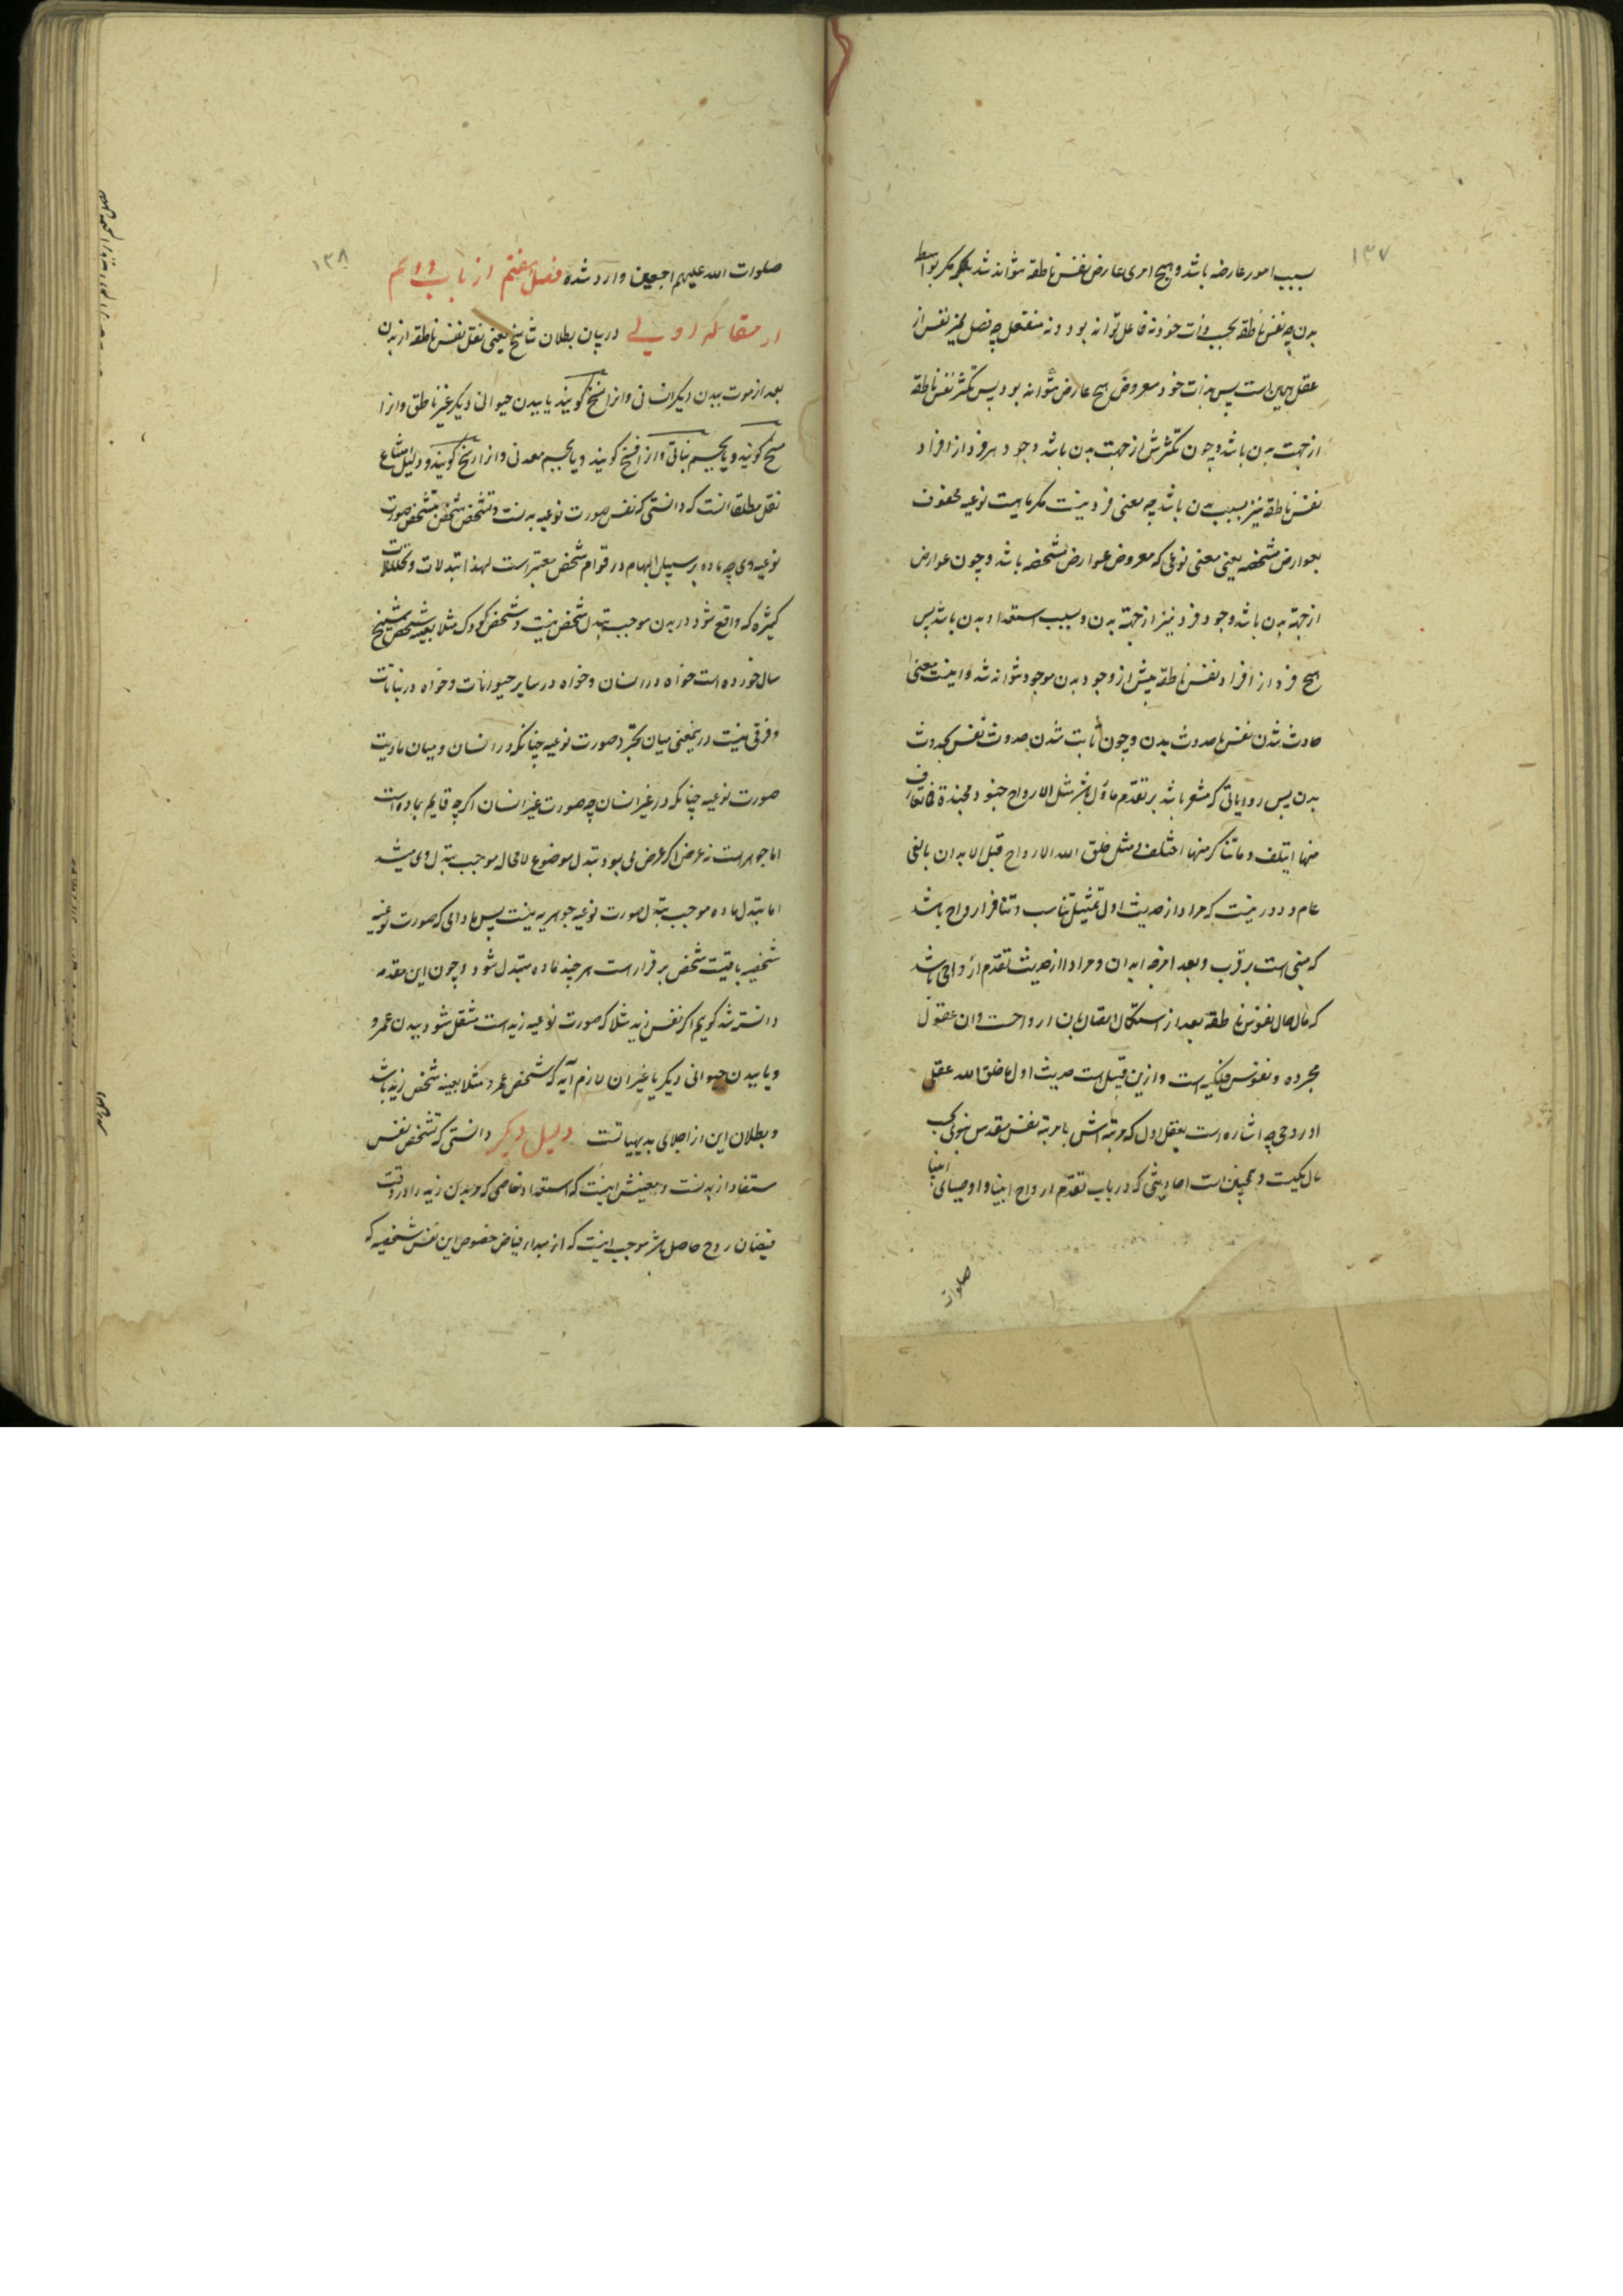 ۱۳۷
سبب امور عارضه باشد و هیچ امری عارض نفس ناطقه نتواند شد مکر بواسطه
بدن چه نفس ناطقه بحسب ذات خود نه فاعل تواند بود و نه منفعل چه فصل ممیز نفس از
عقل همین است پس بذات خود معروض هیچ عارض نتواند بود پس تکثر نفس ناطقه
از جهت بدن باشد و چون تکثرش از جهت بدن باشد وجود هر فرد از افراد
نفس ناطقه نیز بسبب بدن باشد چه معنی فرد نیست مکر ماهیت نوعیه محفوف
بعوارض مشخصه یعنی معنی نوعی که معروض عوارض مشخصه باشد و چون عوارض
از جهة بدن باشد وجود فرد نیز از جهة بدن و بسبب استعداد بدن باشد پس
هیچ فرد از افراد نفس ناطقه پیش از وجود بدن موجود نتواند شد و اینست معنی
حادث شدن نفس با حدوث بدن و چون ثابت شدن حدوث نفس بحدوث
بدن پس روایاتی که مشعر باشد بر تقدم ماول باشد مثل الارواح جنود مجندة فما تعارف
منها ایتلف و ما تناکر منها اختلف و مثل خلق الله الارواح قبل الابدان بالفی
عام و دور نیست که مراد از حدیث اول تمثیل تناسب و تنافر ارواح باشد
که مبنی است بر قرب و بعد امزجه ابدان و مراد از حدیث تقدم ارواحی باشد
که مآل حال نفوس ناطقه بعد از استکمال اتصال بان ارواحست و ان عقول
مجرده و نفوس فلکیه است و ازین قبیل است حدیث اول ما خلق الله عقلی
او روحی چه اشاره است بعقل اول که مرتبه اش با مرتبه نفس مقدس نبوی بحسب
مآل یکیست و همچنین است احادیثی که در باب تقدم ارواح انبیا و اوصیای انبیا
صلوات
۱۳۸
صلوات الله علیهم اجمعین وارد شده فصل هفتم از باب دوم
از مقاله اولی در بیان بطلان تناسخ یعنی نقل نفس ناطقه از بدن
بعد از موت ببدن دیکر انسانی و انرا نسخ کویند یا ببدن حیوانی دیکر غیر ناطق و انرا
مسخ کویند و یا بجسم نباتی و انرا فسخ کویند و یا بجسم معدنی و انرا رسخ کویند و دلیل امتناع
نقل مطلقا انست که دانستی که نفس صورت نوعیه بدنست و تشخص شخص بتشخص صورت
نوعیه وی چه ماده بر سبیل ابهام در قوام شخص معتبر است لهذا تبدلات و تحللات
کثیره که واقع شود در بدن موجب تبدل شخص نیست و شخص کودک مثلا بعینه شخص شیخ
سال خورده است خواه در انسان و خواه در سایر حیوانات و خواه در نباتات
و فرقی نیست در یمعنی میان تجرد صورت نوعیه چنانکه در انسان و میان مادیت
صورت نوعیه چنانکه در غیر انسان چه صورت غیر انسان اکرچه قایم بماده است
اما جوهر است نه عرض اکر عرض می بود تبدل موضوع لامحاله موجب تبدل وی میشد
اما تبدل ماده موجب تبدل صورت نوعیه جوهریه نیست پس مادامی که صورت نوعیه
شخصیه باقیست شخص برقرار است هر چند ماده متبدل شود و چون این مقدمه
دانسته شد کویم اکر نفس زید مثلا که صورت نوعیه زید است منتقل شود ببدن عمرو
و یا ببدن حیوانی دیکر یا غیر ان لازم آید که شخص عمرو مثلا بعینه شخص زید باشد
و بطلان این از اجلای بدیهیاتست دلیل دیکر دانستی که تشخص نفس
مستفاد از بدنست و معنیش اینست که استعداد خاصی که مر بدن زید را در وقت
فیضان روح حاصل باشد موجب اینست که از مبداء فیاض خصوص این نفس شخصیه که